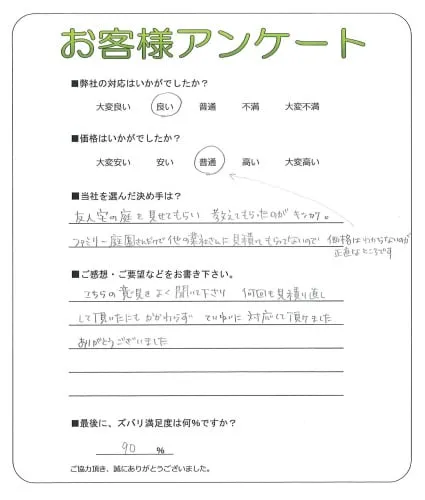 お客様アンケート
■弊社の対応はいかがでしたか？
大変良い 良い 普通 不満 大変不満
■価格はいかがでしたか？
大変安い 安い 普通 高い 大変高い
■当社を選んだ決め手は？
友人宅の庭を見せてもらい 教えてもらったのが キッカケ。
ファミリー庭園さんだけで他の業社さんに見積してもらってないので 価格はわからないのが
正直なところです
■ご感想・ご要望などをお書き下さい。
こちらの意見をよく聞いて下さり 何回も見積り直し
して頂いたにもかかわらず ていねいに対応して頂けました
ありがとうございました
■最後に、ズバリ満足度は何%ですか？
90 %
ご協力頂き、誠にありがとうございました。